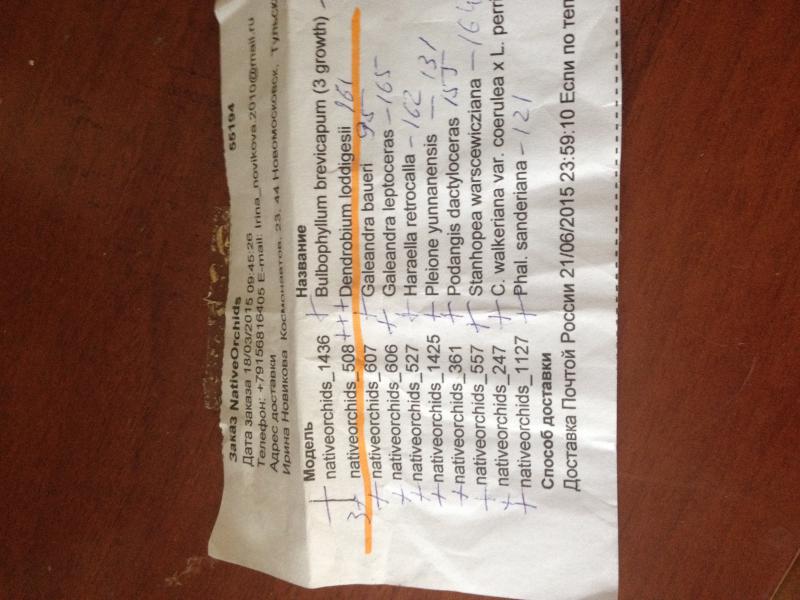 Заказ NativeOrchids 55194
Дата заказа 18/03/2015 09:45:26
Телефон: +79156816405 E-mail: Irina_novikova.2010@mail.ru
Адрес доставки
Ирина Новикова Космонавтов, 23, 44 Новомосковск, Тульск
Модель Название
+ nativeorchids_1436 + Bulbophyllum brevicapum (3 growth) -
3+ nativeorchids_508 +++ Dendrobium loddigesii 161
+ nativeorchids_607 + Galeandra baueri 95
+ nativeorchids_606 + Galeandra leptoceras - 165
+ nativeorchids_527 + Haraella retrocalla - 162
+ nativeorchids_1425 + Pleione yunnanensis - 131
+ nativeorchids_361 + Podangis dactyloceras 155
+ nativeorchids_557 + Stanhopea warscewicziana - 164
+ nativeorchids_247 + C. walkeriana var. coerulea x L. perri
+ nativeorchids_1127 + Phal. sanderiana - 121
Способ доставки
Доставка Почтой России 21/06/2015 23:59:10 Если по теп